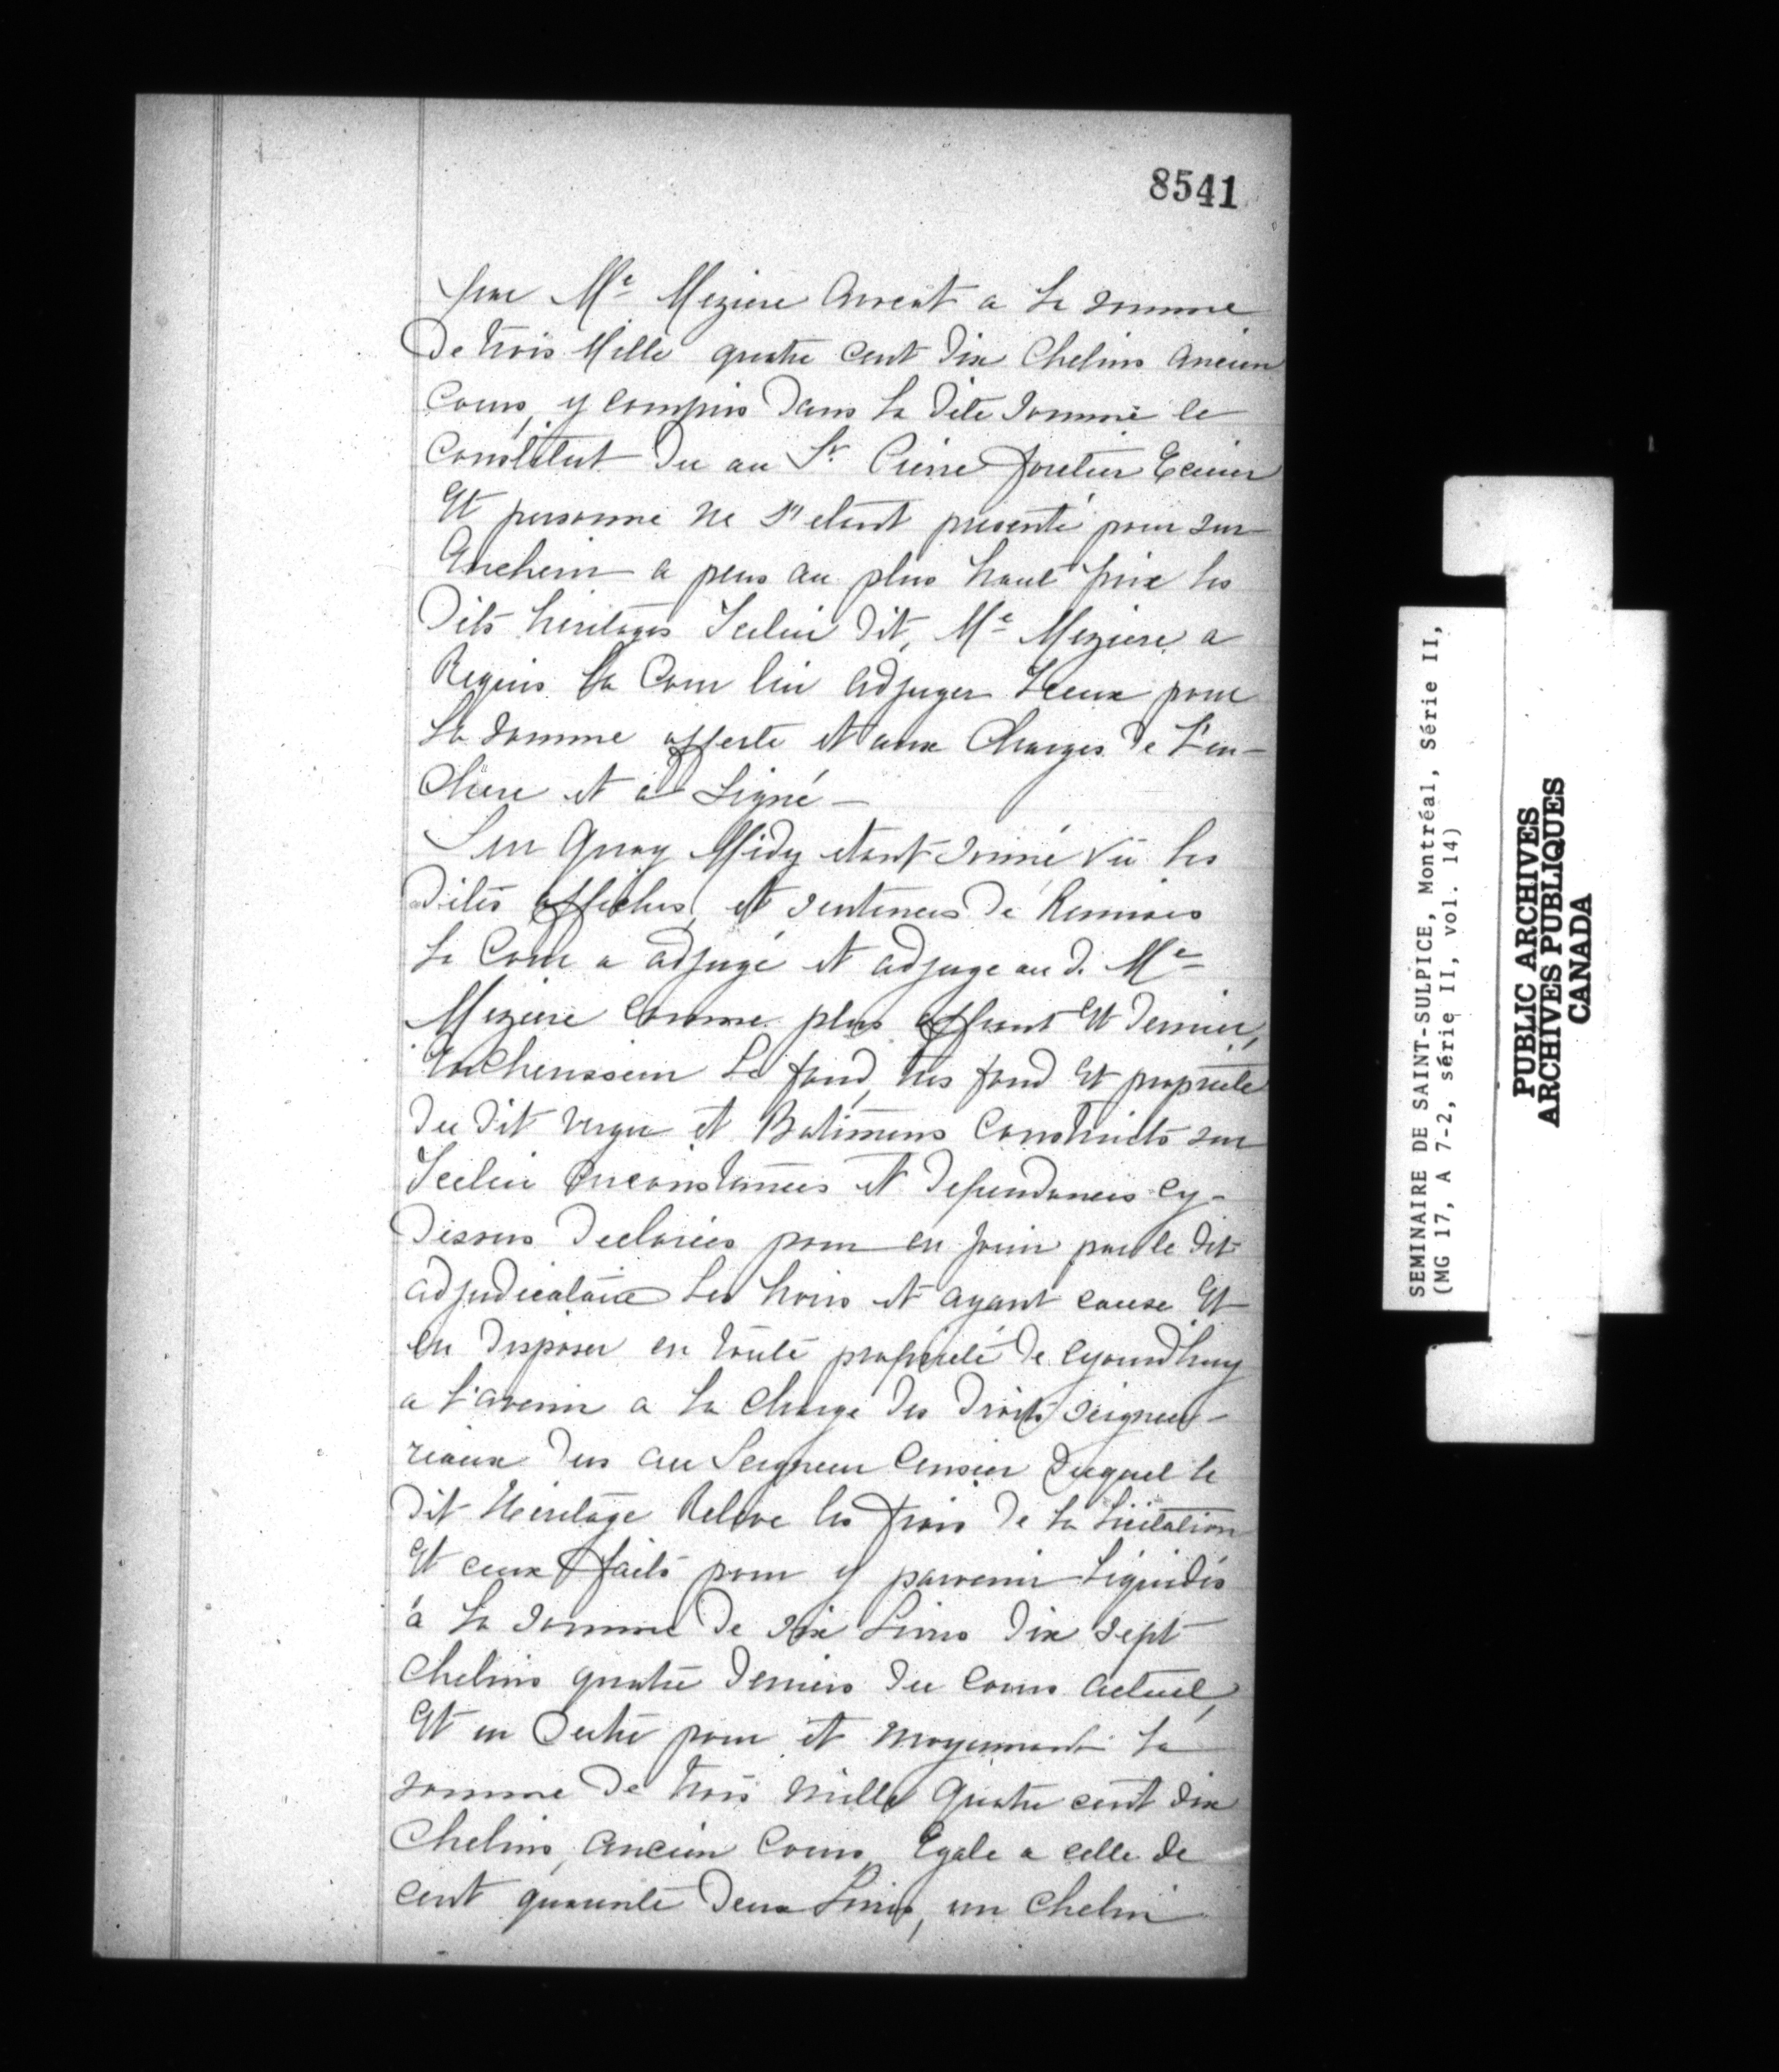 8541
par Me Meziere Avocat a la somme
De trois Mille quatre cent dix Chelins ancien
Cours, y compris dans la dite somme le
Constitut du au Sr. Pierre foretier Ecuier
Et personne ne s'etant presenté pour sur
Encherir a peus au plus haut prix les
dits heritages Icelui dit, Me Meziere a
Requis la Cour lui adjuger Iceux pour
la somme offerte et aux Charges de L'en-
chere et a Signé –
Sur Quoy Midy etant sonné vu les
dites affiches, et sentences de Remises
La Cour a adjugé et adjuge au d. Me
Meziere Comme plus offrant Et dernier,
Encherisseur Le fond, tres fond Et proprieté
du dit verger et Batimens Construits sur
Icelui Circonstances et dependances cy-
dessus declarées pour en jouir par le dit
adjudicataire Ses hoirs et ayant cause Et
en disposer en toute proprieté de cejourd'huy
a L'avenir a la charge des droits seigneu-
riaux dus au Seigneur Censier duquel le
dit Heritage Releve les frais de la Licitation
Et ceux faits pour y parvenir Liquidés
à la somme de six Livres dix sept
Chelins quatre deniers du cours actuel,
Et en Outre pour et moyennant la
somme de trois mille Quatre cent dix
Chelins, ancien Cours, Egale a celle de
cent quarante deux Livres, un chelin
SEMINAIRE DE SAINT-SULPICE, Montréal, Série II,
(MG 17, A 7-2, série II, vol. 14)
PUBLIC ARCHIVES
ARCHIVES PUBLIQUES
CANADA